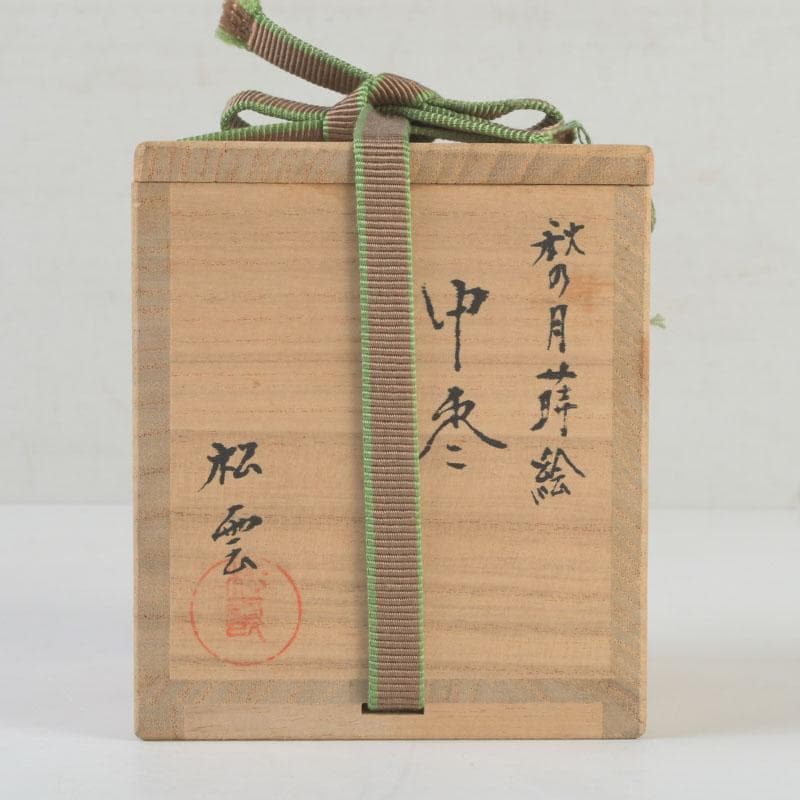 秋の月蒔絵
中棗
松雲